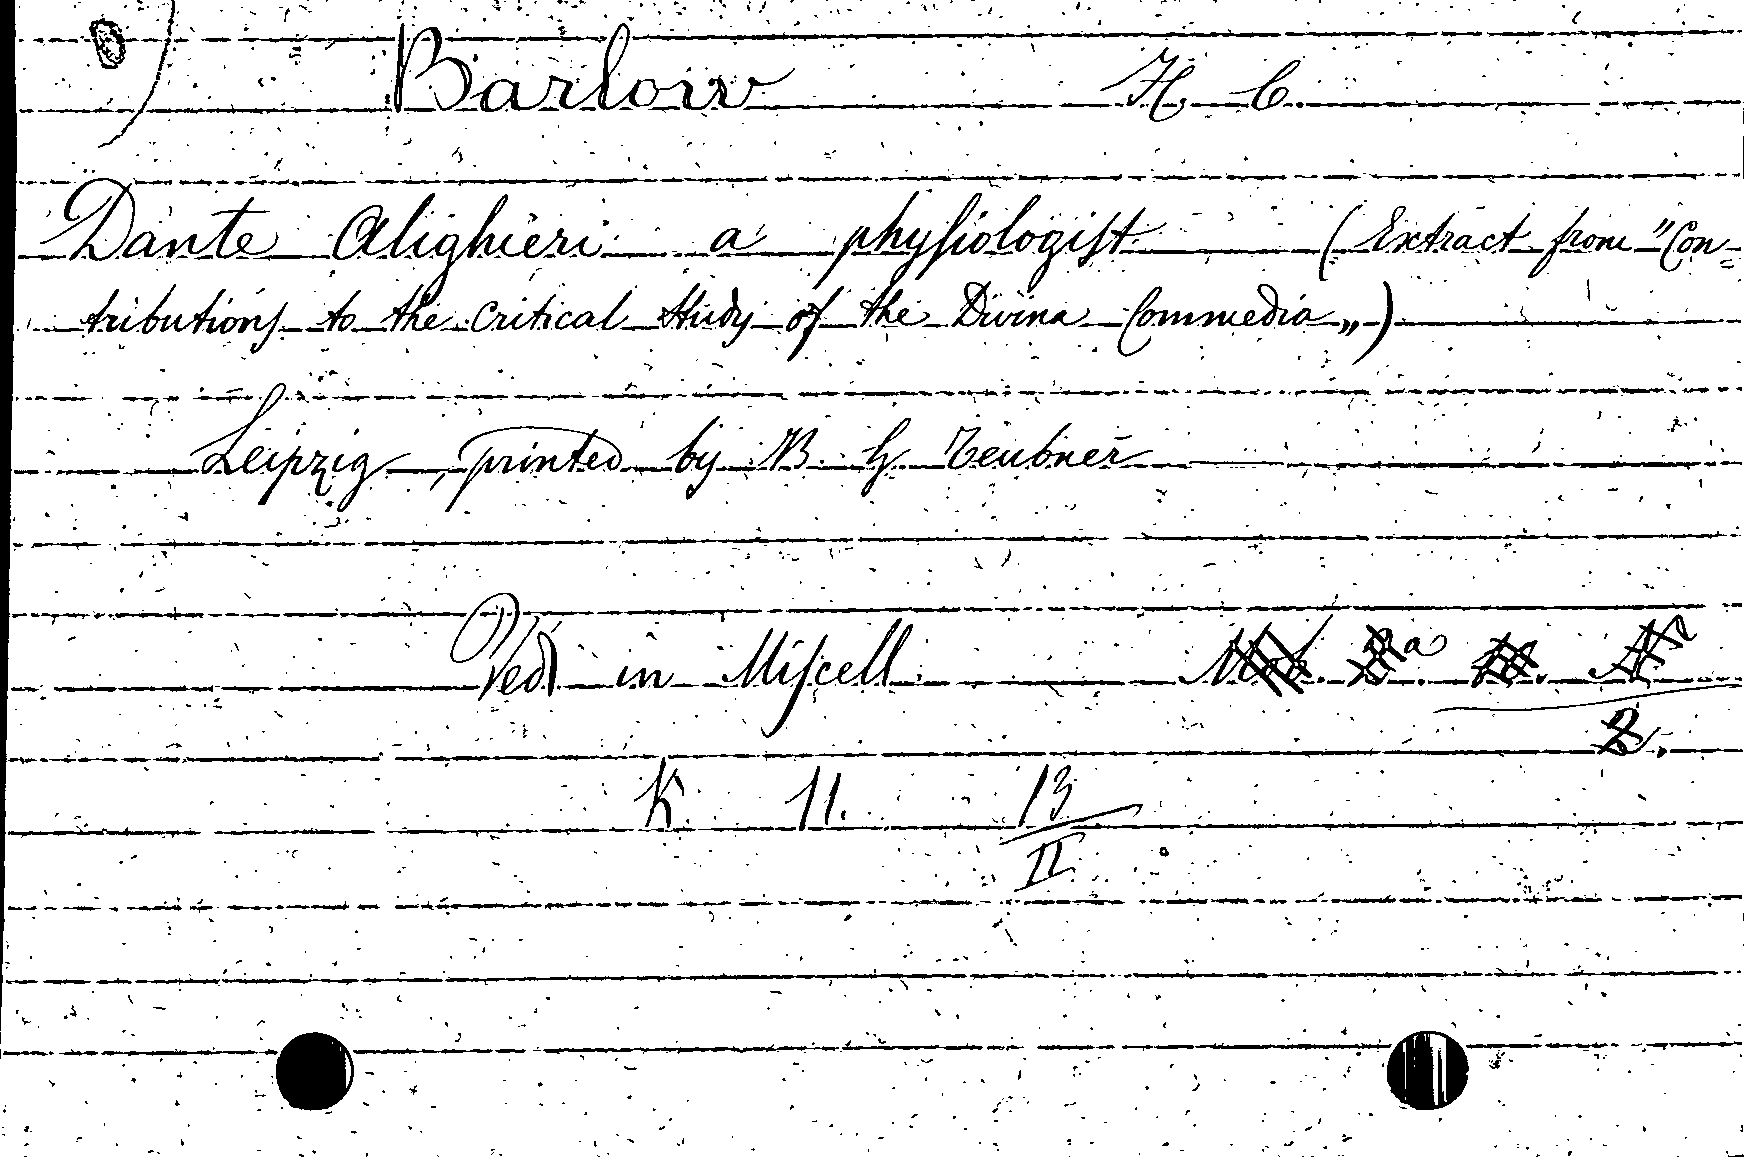 Barlow H. C.
Dante Alighieri a physiologist (Extract from "Con-
tributions to the critical Study of the Divina Commedia„)
Leipzig, printed by B. G. Teubner
Vedi in Miscell.
2.
K. 11. 13
II